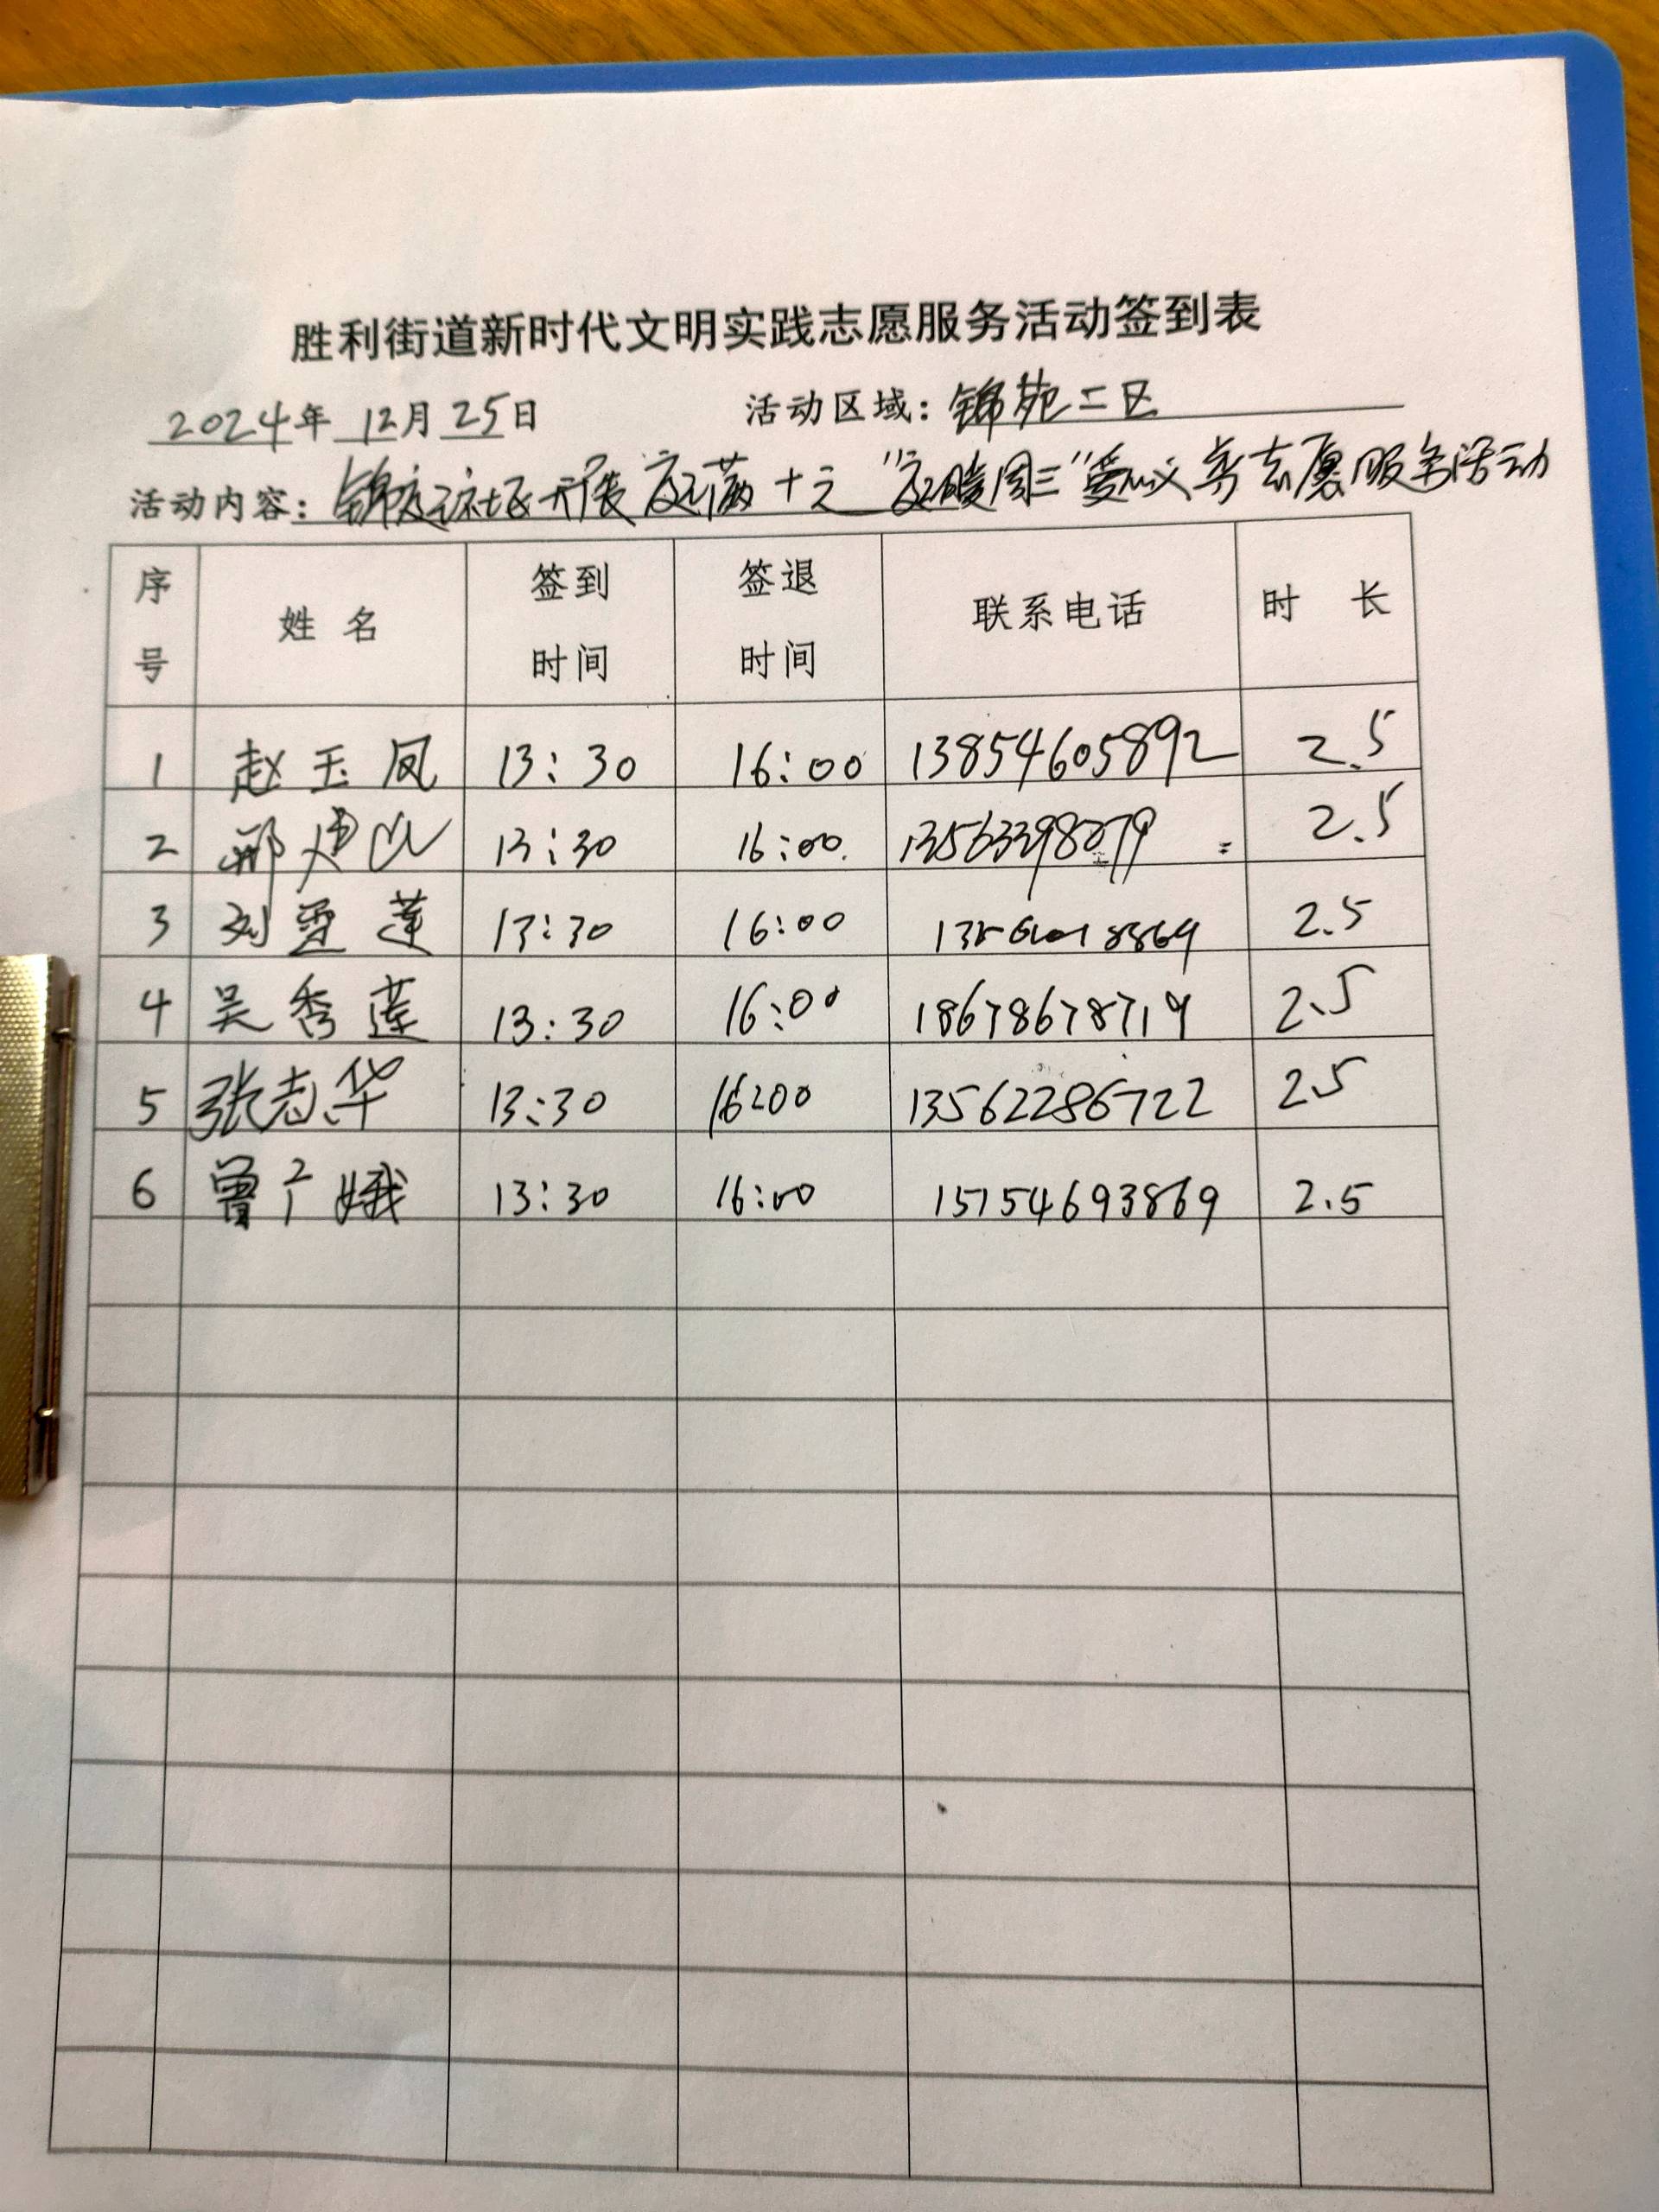 胜利街道新时代文明实践志愿服务活动签到表
2024年 12月 25日 活动区域：锦苑二区
活动内容：锦庭社区开展庭满十元"庭暖周三"爱心义剪志愿服务活动
序号 姓名 签到时间 签退时间 联系电话 时长
1 赵玉凤 13:30 16:00 13854605892 2.5
2 邢建 13:30 16:00. 2.5
3 刘雪莲 13:30 16:00 2.5
4 吴秀莲 13:30 16:00 18678678719 2.5
5 张志华 13:30 16:00 13562286722 2.5
6 曾广娥 13:30 16:00 15154693869 2.5